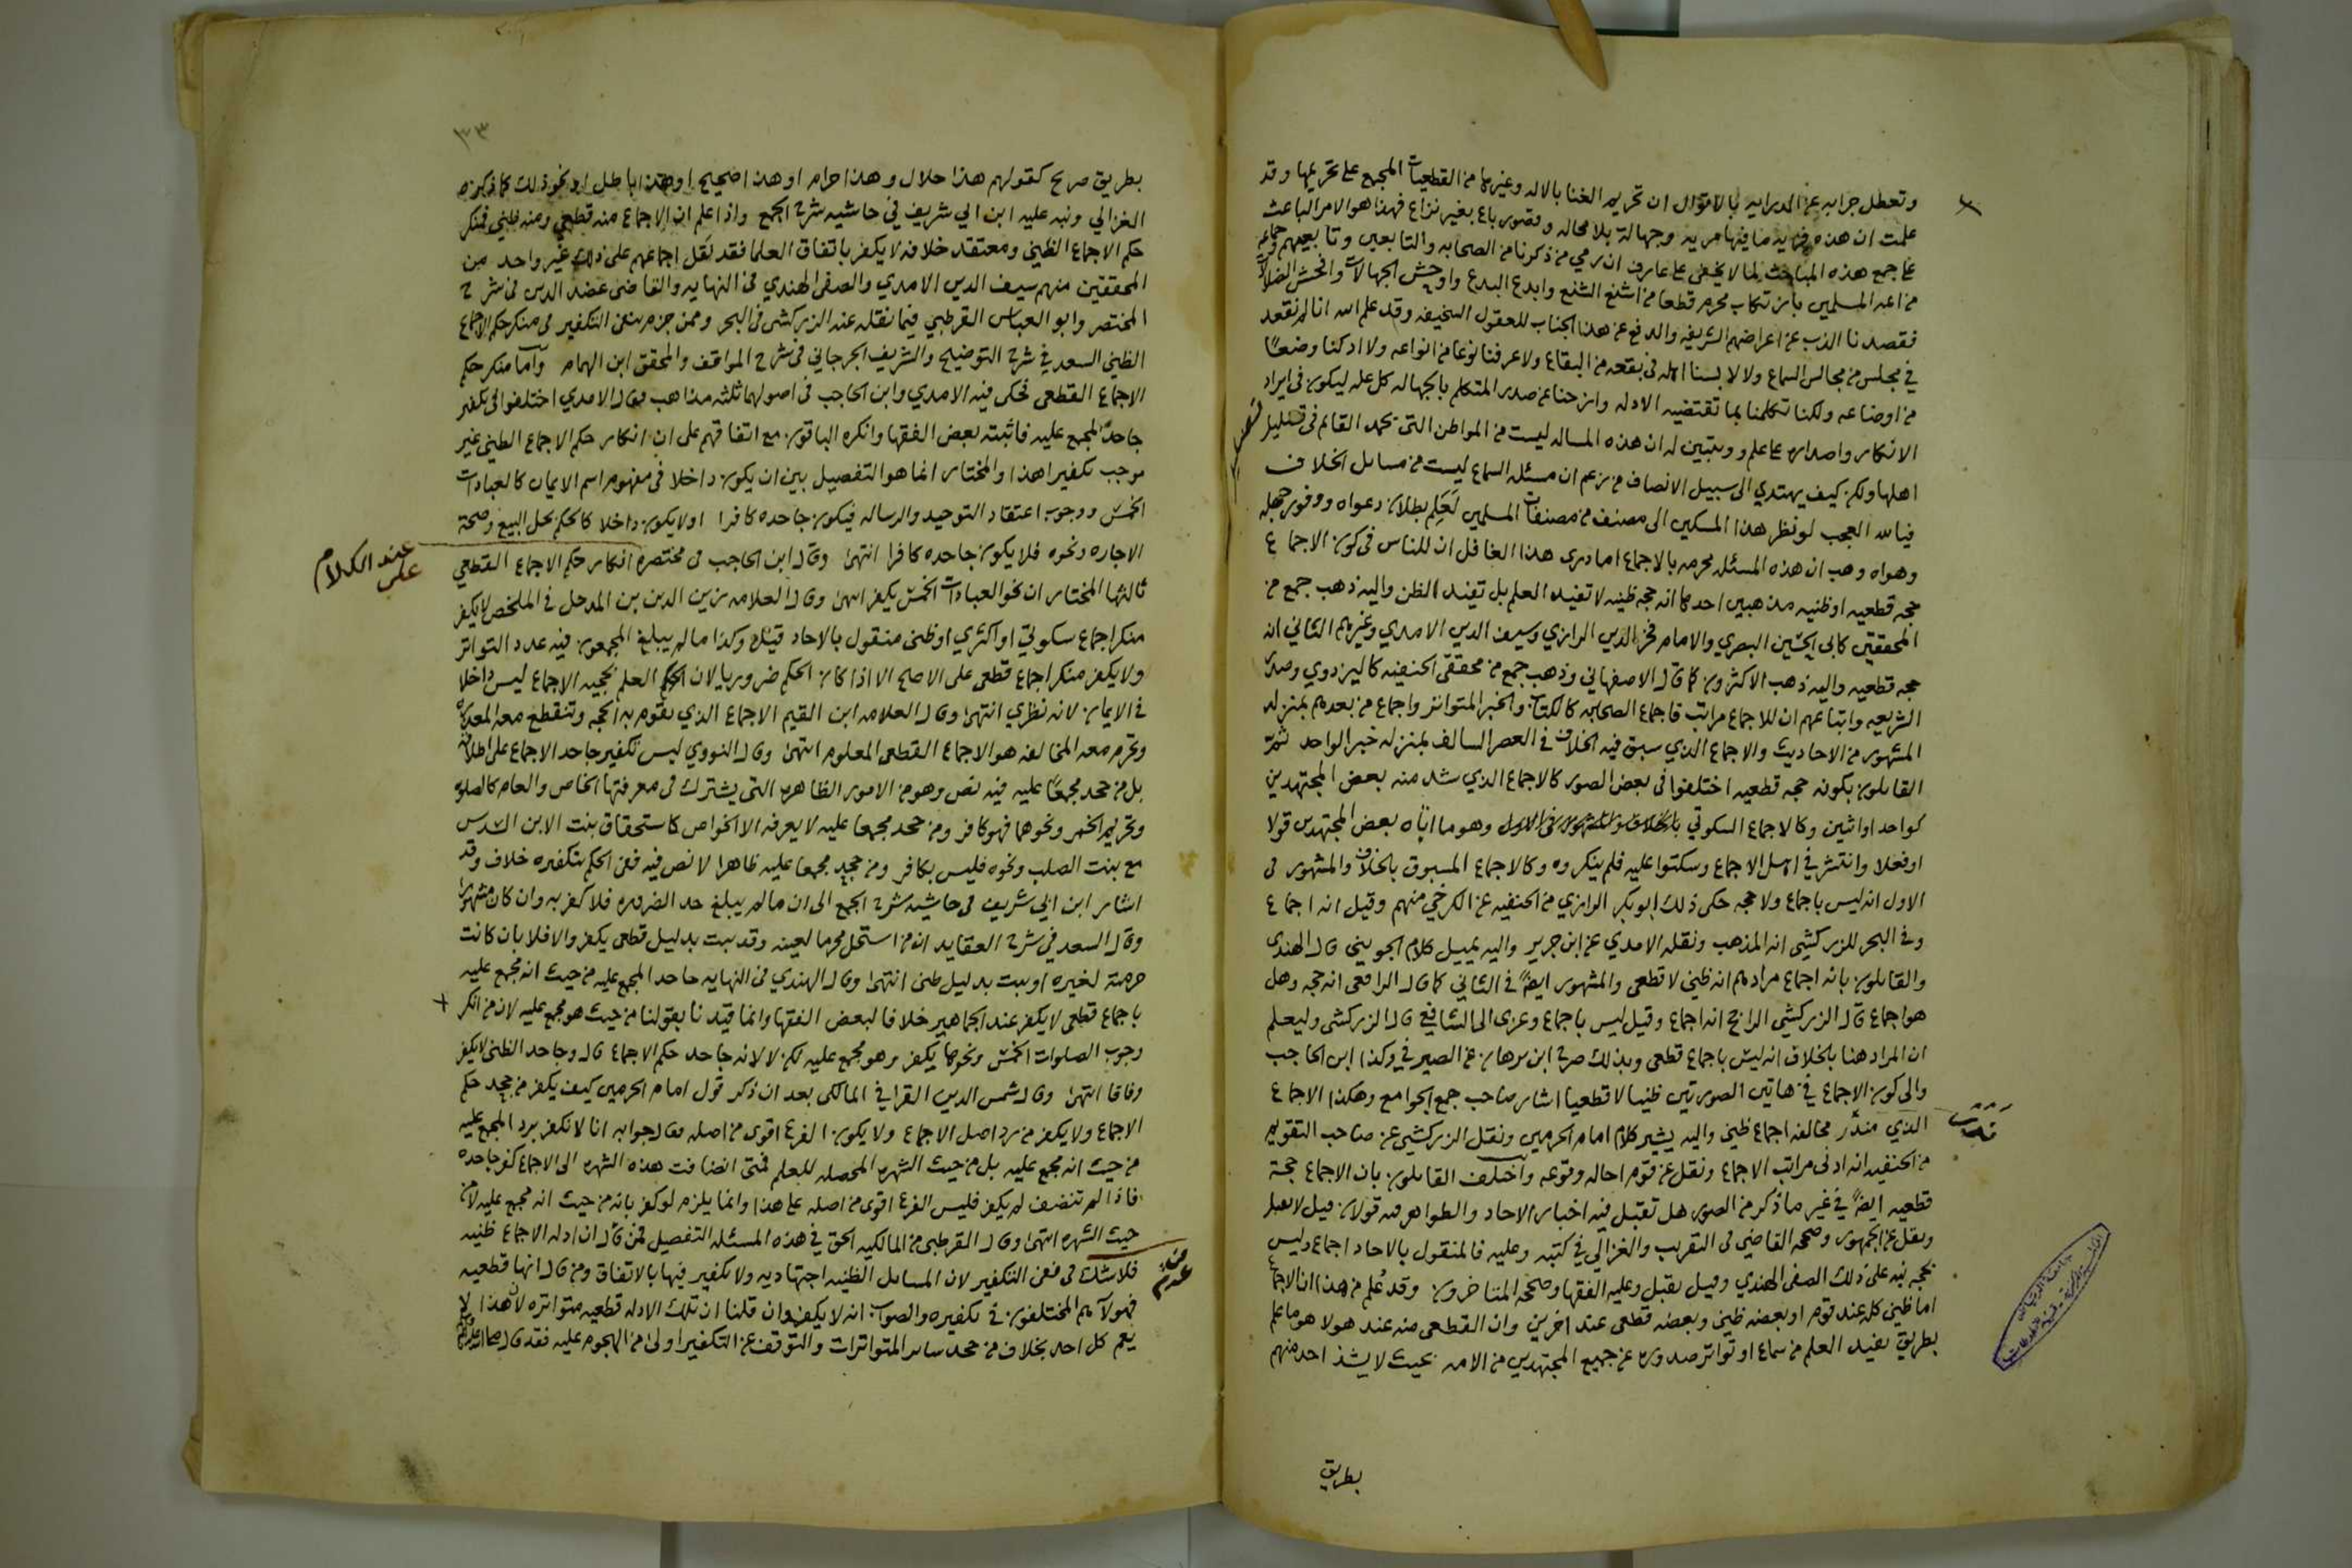 وتعطل جرابه عن الدرايه بالاقوال ان تحريم الغنا بالاله وغيرها من القطعيات المجمع على تحريمها وقد
علمت ان هذه فريه ما فيها مريه وجهالة بلا محاله وقصور باع بغير نزاع فهذا هو الامر الباعث
على جمع هذه المباحث لما لا يخفى على عارف ان رمي من ذكرنا من الصحابه والتابعين وتابعيهم وجماعه
من ائمه المسلمين بارتكاب محرم قطعا من اشنع الشنع وابدع البدع واوحش الجهالات وافحش الضلالات
فقصدنا الذب عن اعراضهم الشريفه والدفع عن هذا الجناب للعقول السخيفه وقد علم الله انا لم نقعد
في مجلس من مجالس السماع ولا لابسنا اهله في بقعه من البقاع ولا عرفنا نوعا من انواعه ولا ادركنا وضعًا
من اوضاعه ولكنا تكلمنا بما تقتضيه الادله وازحنا عن صدر المتكلم بالجهاله كل عله ليكون في ايراد
الانكار واصداره على علم وويتبين له ان هذه المساله ليست من المواطن التي يحمد القائم في تضليل
اهلها ولكن كيف يهتدي الى سبيل الانصاف من زعم ان مسئله السماع ليست من مسايل الخلاف
فيالله العجب لو نظر هذا المسكين الى مصنف من مصنفات المسلمين لَعَلِم بطلان دعواه ووفور جهله
وهواه وهب ان هذه المسئله محرمه بالاجماع اما درى هذا الغافل ان للناس في كون الاجماع
حجه قطعيه او ظنيه مذهبين احدهما انه حجه ظنيه لا تفيد العلم بل تفيد الظن واليه ذهب جمع من
المحققين كابي الحسين البصري والامام فخر الدين الرازي وسيف الدين الامدي وغيرهم الثاني انه
حجه قطعيه واليه ذهب الاكثرون كما قال الاصفهاني وذهب جمع من محققي الحنفيه كالبزدوي وصدر
الشريعه واتباعهم ان للاجماع مراتب فاجماع الصحابه كالكتاب والخبر المتواتر واجماع من بعدهم بمنزله
المشهور من الاحاديث والاجماع الذي سبق فيه الخلاف في العصر السالف بمنزله خبر الواحد ثم
القايلون بكونه حجه قطعيه اختلفوا في بعض الصور كالاجماع الذي شذ منه بعض المجتهدين
كواحد او اثنين وكالاجماع السكوتي وهو ما اتاه بعض المجتهدين قولا
او فعلا وانتشر في اهل الاجماع وسكتوا عليه فلم ينكروه وكالاجماع المسبوق بالخلاف والمشهور في
الاول انه ليس باجماع ولا حجه حكى ذلك ابو بكر الرازي من الحنفيه عن الكرخي منهم وقيل انه اجماع
وفي البحر للزركشي انه المذهب ونقله الامدي عن ابن جرير واليه يميل كلام الجويني قال الهندي
والقايلون بانه اجماع مرادهم انه ظني لا قطعي والمشهور ايضًا في الثاني كما قال الرافعي انه حجه وهل
هو اجماع قال الزركشي الراجح انه اجماع وقيل ليس باجماع وعزي الى الشافعي قال الزركشي وليعلم
ان المراد هنا بالخلاف انه ليس باجماع قطعي وبذلك صرح ابن برهان عن الصيرفي وكذا ابن الحاجب
والى كون الاجماع في هاتين الصورتين ظنيا لا قطعيا اشار صاحب جمع الجوامع وهكذا الاجماع
الذي مخالفه اجماع ظني واليه يشير كلام امام الحرمين ونقل الزركشي عن صاحب التقويم
من الحنفيه انه ادنى مراتب الاجماع ونقل عن قوم احاله وقوعه واختلف القايلون بان الاجماع حجة
قطعيه ايضًا في غير ما ذكر من الصور هل تقبل فيه اخبار الاحاد والظواهر فيه قولان قيل لا يقبل
ونقل عن الجمهور وصححه القاضي في التقريب والغزالي في كتبه وعليه فالمنقول بالاحاد اجماع وليس
بحجه نبه على ذلك الصفي الهندي وقيل يقبل وعليه الفقها وصححه المتاخرون وقد عُلم من هذا ان الاجماع
اما ظني كله عند قوم او بعضه ظني وبعضه قطعي عند اخرين وان القطعي منه عند هولا هو ما علم
بطريق يفيد العلم من سماع او تواتر صدوره عن جميع المجتهدين من الامه بحيث لا يشذ احد منهم
بطريق
١٢٣
بطريق صريح كقولهم هذا حلال وهذا حرام او هذا صحيح او هذا باطل او نحو ذلك كما ذكره
الغزالي ونبه عليه ابن ابي شريف في حاشيه شرح الجمع واذا علم ان الاجماع منه قطعي ومنه ظني فمنكر
حكم الاجماع الظني ومعتقد خلافه لا يكفر باتفاق العلما فقد نقل اجماعهم على ذلك غير واحد من
المحققين منهم سيف الدين الامدي والصفي الهندي في النهايه والقاضي عضد الدين في شرح
المختصر وابو العباس القرطبي فيما نقله عنه الزركشي في البحر وممن جزم بنفي التكفير في منكر حكم الاجماع
الظني السعد في شرح التوضيح والشريف الجرجاني في شرح المواقف والمحقق ابن الهمام واما منكر حكم
الاجماع القطعي فحكى فيه الامدي وابن الحاجب في اصولهما ثلثه مذاهب فقال الامدي اختلفوا في تكفير
جاحد المجمع عليه فاثبته بعض الفقها وانكره الباقون مع اتفاقهم على ان انكار حكم الاجماع الظني غير
موجب تكفيرا هذا والمختار انما هو التفصيل بين ان يكون داخلا في مفهوم اسم الايمان كالعبادات
الخمس ووجوب اعتقاد التوحيد والرساله فيكون جاحده كافرا او لا يكون داخلا كالحكم بحل البيع وصحة
الاجاره ونحوه فلا يكون جاحده كافرا انتهى وقال ابن الحاجب في مختصره انكار حكم الاجماع القطعي
عند الكلام
على
ثالثها المختار ان نحو العبادات الخمس يكفر انتهى وقال العلامه زين الدين بن المرحل في الملخص لا يكفر
منكر اجماع سكوتي او اكثري او ظني منقول بالاحاد قيل وكذا ما لم يبلغ المجمعون فيه عدد التواتر
ولا يكفر منكر اجماع قطعي على الاصح الا اذا كان الحكم ضروريا لان العلم بحجيه الاجماع ليس داخلا
في الايمان لانه نظري انتهى وقال العلامه ابن القيم الاجماع الذي تقوم به الحجه وتنقطع معه المعذره
وتحرم معه المخالفه هو الاجماع القطعي المعلوم انتهى وقال النووي ليس تكفير جاحد الاجماع على اطلاقه
بل من جحد مجمعًا عليه فيه نص وهو من الامور الظاهره التي يشترك في معرفتها الخاص والعام كالصلوه
وتحريم الخمر ونحوهما فهو كافر ومن جحد مجمعا عليه لا يعرفه الا الخواص كاستحقاق بنت الابن السدس
مع بنت الصلب ونحوه فليس بكافر ومن جحد مجمعا عليه ظاهرا لا نص فيه ففي الحكم بتكفيره خلاف وقد
اشار ابن ابي شريف في حاشيه شرح الجمع الى ان ما لم يبلغ حد الضروره فلا كفر به وان كان مشهورا
وقال السعد في شرح العقايد ان من استحل محرما لعينه وقد ثبت بدليل قطعي يكفر والا فلا بان كانت
حرمته لغيره او ثبت بدليل ظني انتهى وقال الهندي في النهايه جاحد المجمع عليه من حيث انه مجمع عليه
باجماع قطعي لا يكفر عند الجماهير خلافا لبعض الفقها وانما قيدنا بقولنا من حيث هو مجمع عليه لان من انكر
وجوب الصلوات الخمس ونحوها يكفر وهو مجمع عليه لكن لا لانه جاحد حكم الاجماع قال وجاحد الظني لا يكفر
وفاقا انتهى وقال شمس الدين القرافي المالكي بعد ان ذكر قول امام الحرمين كيف يكفر من جحد حكم
الاجماع ولا يكفر من رد اصل الاجماع ولا يكون الفرع اقوى من اصله فقال جوابه انا لا نكفر برد المجمع عليه
من حيث انه مجمع عليه بل من حيث الشهره المحصله للعلم فمتى انضافت هذه الشهره الى الاجماع كفر جاحده
فاذا لم تنضف لم يكفر فليس الفرع اقوى من اصله على هذا وانما يلزم لو كفر بانه من حيث انه مجمع عليه لا من
حيث الشهره انتهى وقال القرطبي من المالكيه الحق في هذه المسئله التفصيل فمن قال ان ادله الاجماع ظنيه
فلا شك في نفي التكفير لان المسايل الظنيه اجتهاديه ولا تكفير فيها بالاتفاق ومن قال انها قطعيه
فهولآء هم المختلفون في تكفيره والصواب انه لا يكفر وان قلنا ان تلك الادله قطعيه متواتره لان هذا لا
يعم كل احد بخلاف من جحد ساير المتواترات والتوقف عن التكفير اولى من الهجوم عليه فقد قال صلى الله عليه وسلم